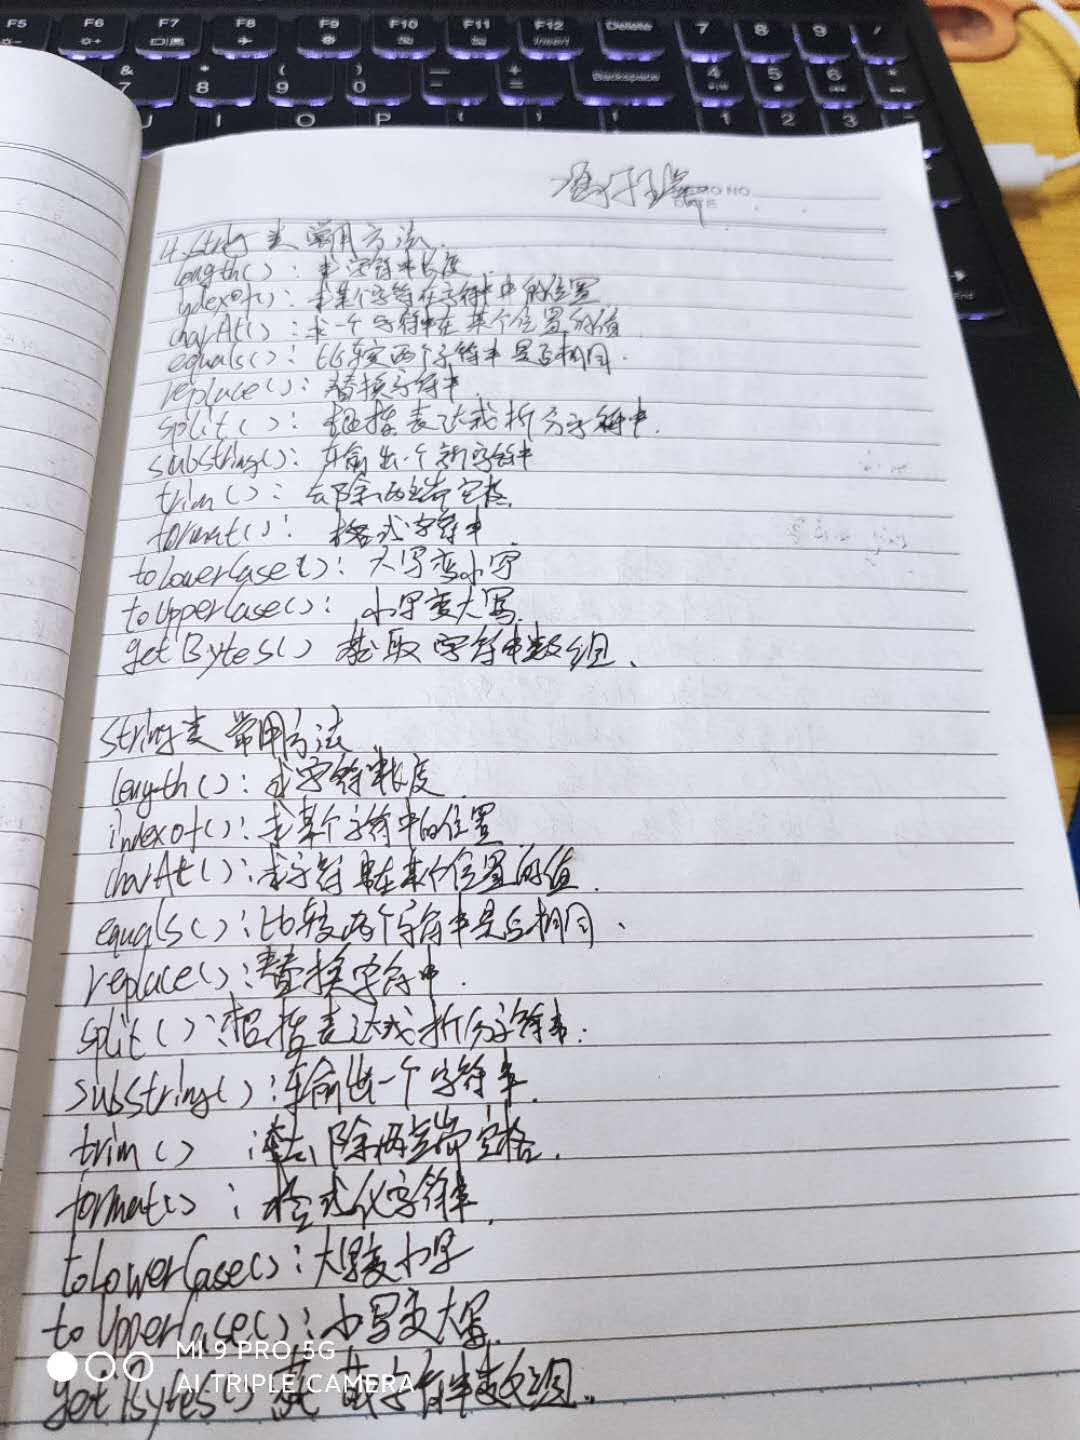 F5 F6 F7 F8 F9 F10 F11 F12 Delete 7 8 9 /
Insert
& * ( ) — +
7 8 9 0 - = Backspace 4 5 6
U I O P 1 2 3
End
MEMO NO.
DATE
4. String 类常用方法.
length(): 求字符串长度
indexof(): 求某个字符在字符串中的位置
charAt(): 求一个字符串在某个位置的值
equals(): 比较两个字符串是否相同.
replace(): 替换字符串
split(): 根据表达式拆分字符串.
substring(): 输出一个新字符串
trim(): 去除两端空格
format(): 格式字符串
toLowerCase(): 大写变小写
toUpperCase(): 小写变大写.
getBytes() 截取字符串数组.
String类 常用方法
length(): 求字符串长度
indexof(): 求某个字符中的位置
charAt(): 求字符串在某个位置的值.
equals(): 比较两个字符串是否相同.
replace(): 替换字符串.
split(): 根据表达式拆分字符串.
substring(): 输出一个字符串.
trim() : 去除两端空格.
format(): 格式化字符串.
toLowerCase(): 大写变小写
toUpperCase(): 小写变大写.
getBytes() 截字符串数组.
MI 9 PRO 5G
AI TRIPLE CAMERA